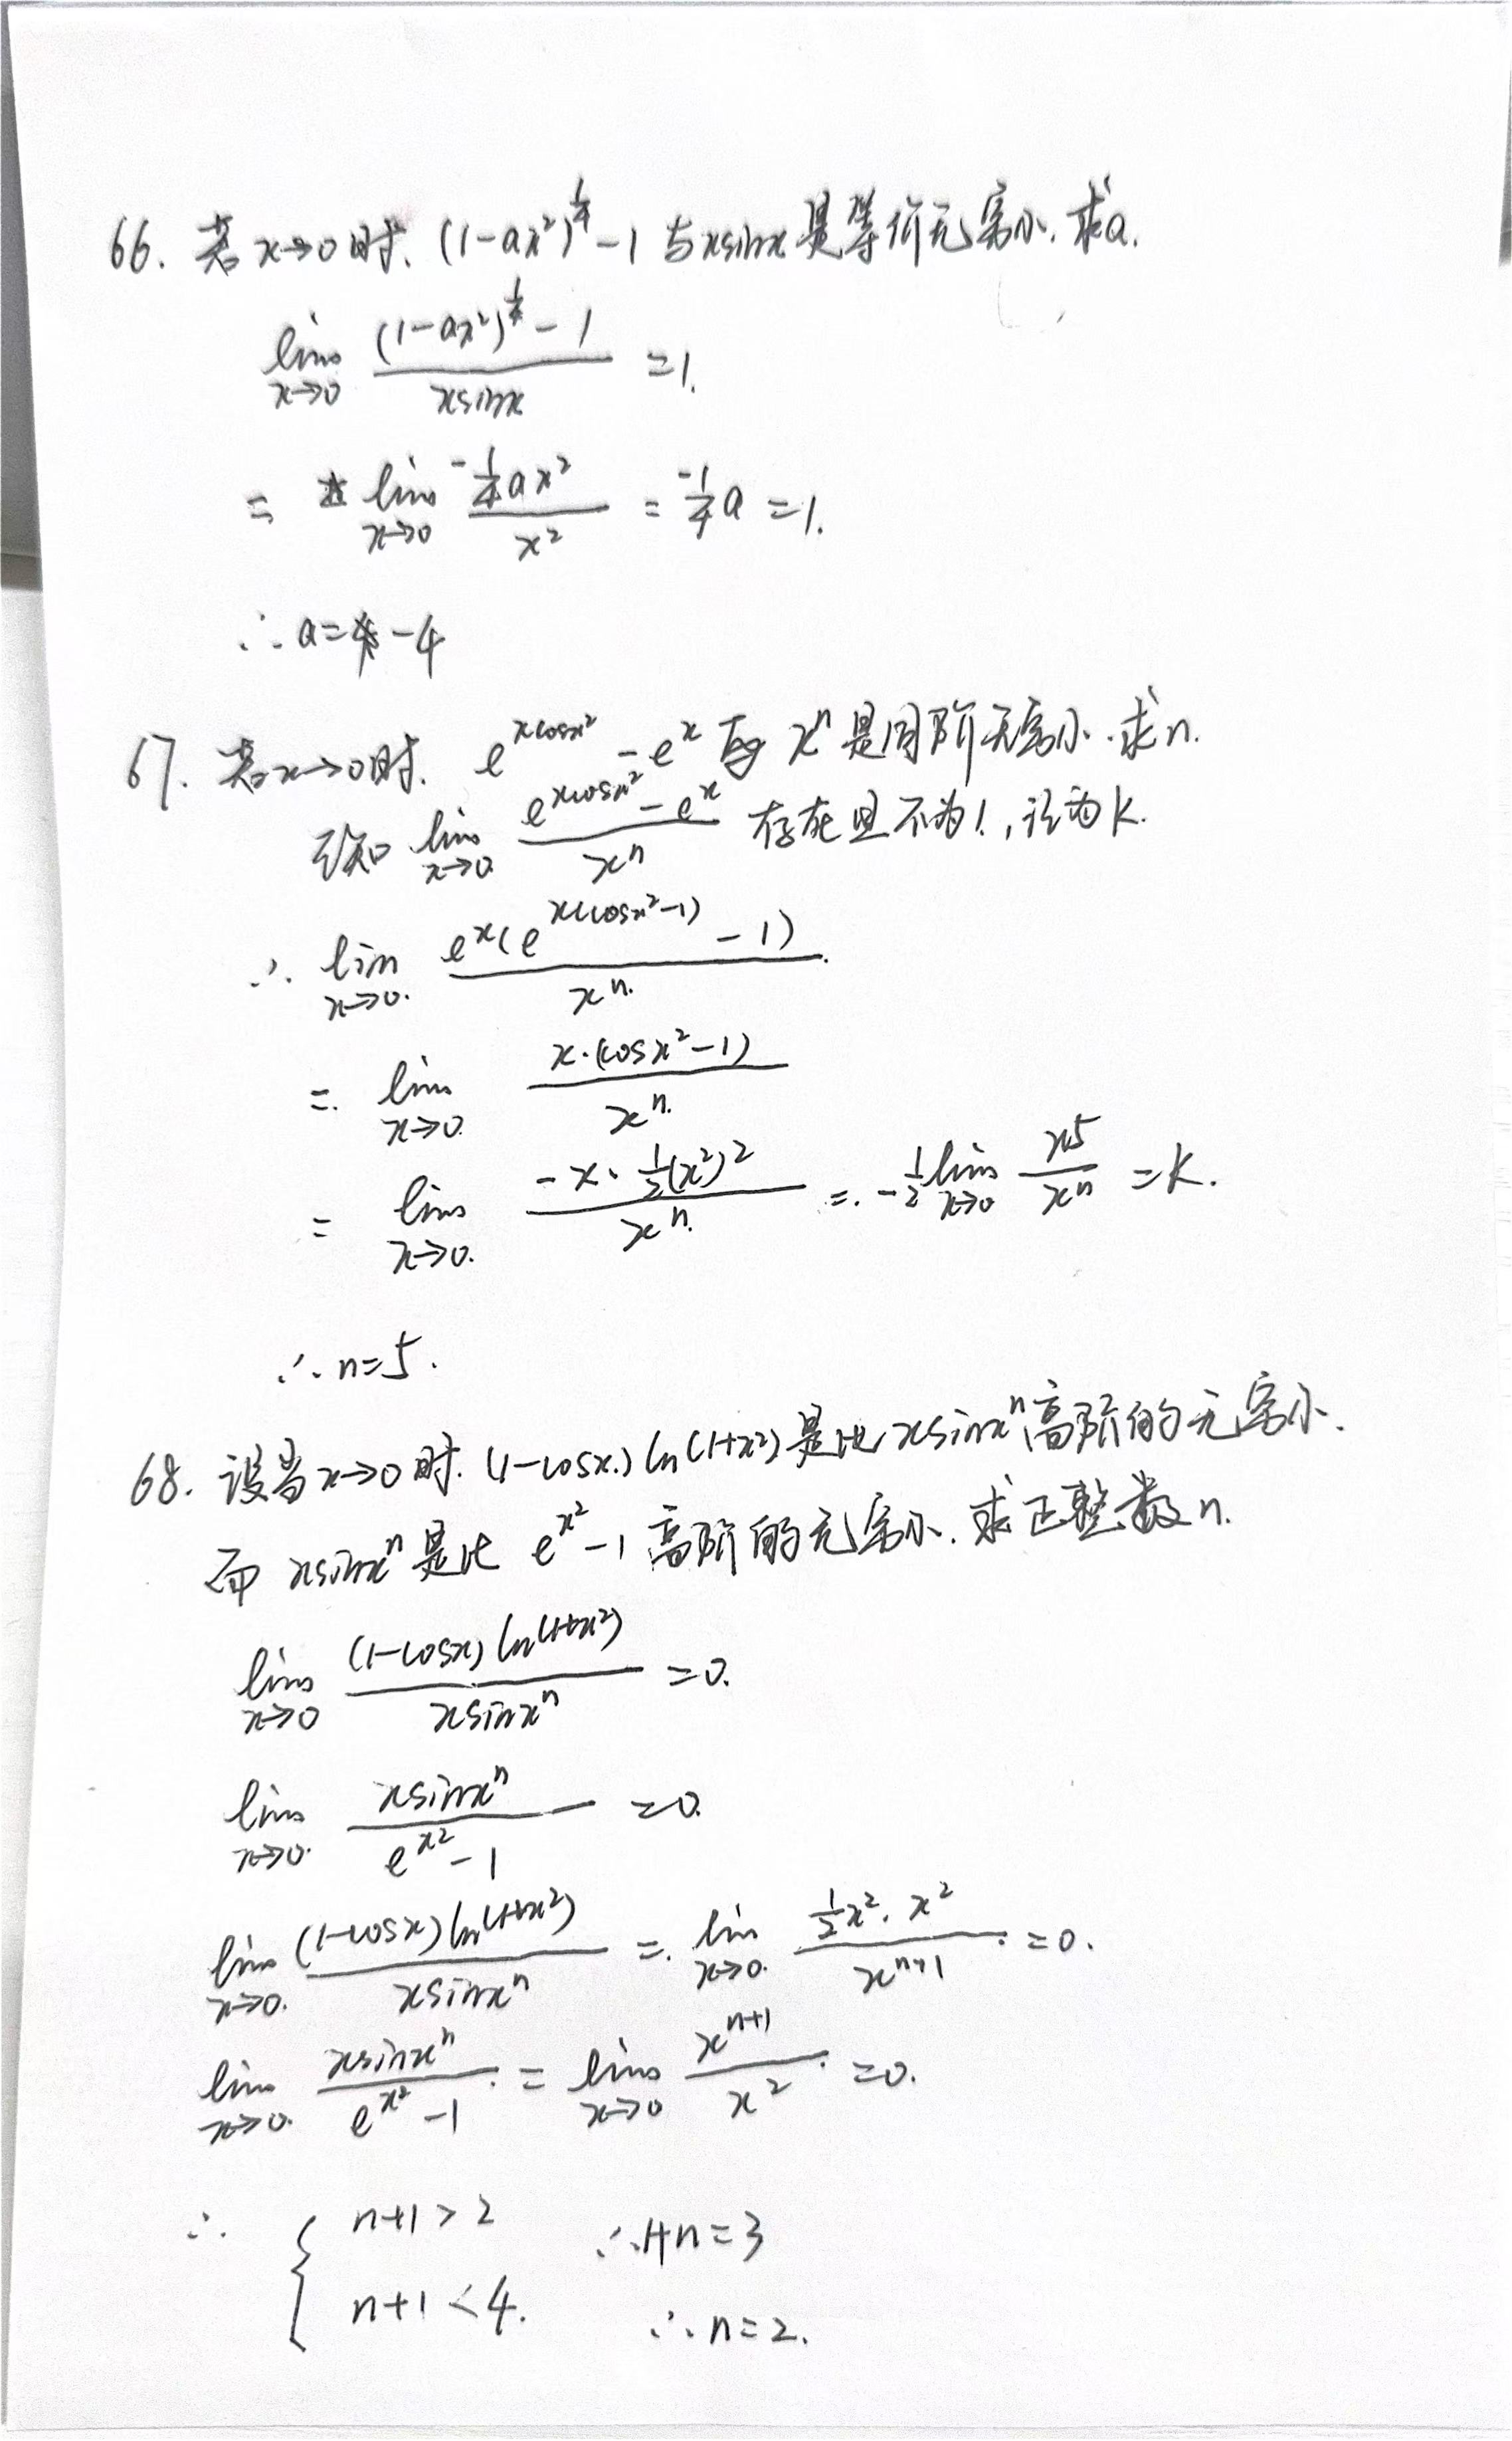 66. 若x→0时. (1-ax²)^{1/4}-1 与xsinx是等价无穷小. 求a.
lim_{x→0} \frac{(1-ax²)^{1/4}-1}{xsinx} =1.
= lim_{x→0} \frac{-\frac{1}{4}ax²}{x²} = -\frac{1}{4}a =1.
∴ a= -4
67. 若x→0时. e^{xcosx²}-e^x 与 x^n 是同阶无穷小. 求n.
lim_{x→0} \frac{e^{xcosx²}-e^x}{x^n} 存在且不为1., 设为k.
∴ lim_{x→0.} \frac{e^x(e^{x(cosx²-1)}-1)}{x^n.}
=. lim_{x→0.} \frac{x·(cosx²-1)}{x^n.}
= lim_{x→0.} \frac{-x·\frac{1}{2}(x²)²}{x^n.} =. -\frac{1}{2}lim_{x→0} \frac{x^5}{x^n} =k.
∴ n=5.
68. 设当x→0时. (1-cosx.)ln(1+x²)是比xsinx^n高阶的无穷小.
而 xsinx^n是比 e^{x²}-1高阶的无穷小. 求正整数n.
lim_{x→0} \frac{(1-cosx)ln(1+x²)}{xsinx^n} =0.
lim_{x→0.} \frac{xsinx^n}{e^{x²}-1} =0.
lim_{x→0.} \frac{(1-cosx)ln(1+x²)}{xsinx^n} =. lim_{x→0.} \frac{\frac{1}{2}x².x²}{x^{n+1}} =0.
lim_{x→0.} \frac{xsinx^n}{e^{x²}-1} = lim_{x→0} \frac{x^{n+1}}{x²} =0.
∴. { n+1>2 ∴1+n=3
n+1<4. ∴n=2.